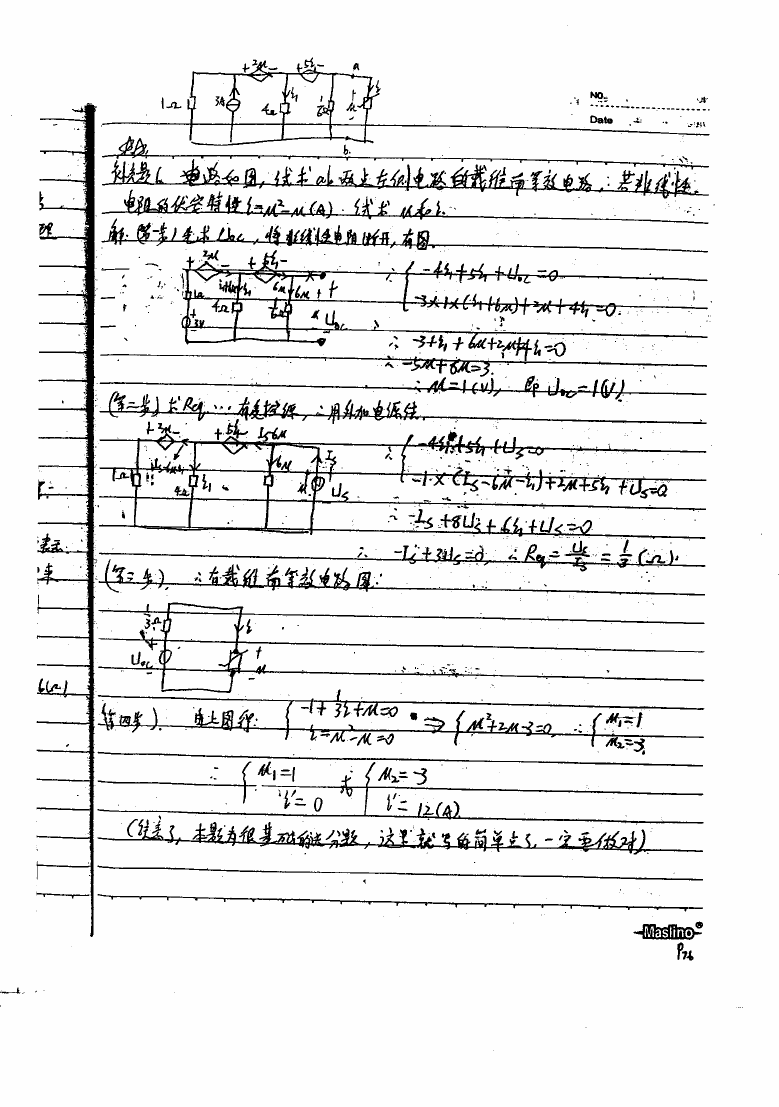 + 2u -  + 5i₁ -  a
1Ω  3A  4Ω  i₁  1/6Ω  i
b
No.
Date
补充题6 电路如图,试求ab两点左侧电路的戴维南等效电路,若非线性
电阻的伏安特性i=u²-u(A).试求u和i.
解:(第一步)先求Uoc,将非线性电阻断开,有图.
+ 2u -  + 5i₁ -
1Ω  3V  4Ω  i₁+6u  i₁  6u  1/6Ω  + u -  + Uoc -
∴ { -4i₁+5i₁+Uoc=0
-3+1×(i₁+6u)+2u+4i₁=0.
∴ -3+i₁+6u+2u+4i₁=0
∴ -5u+8u=3.
∴ u=1(V), 即Uoc=1(V).
(第二步)求Req … 有受控源,∴用外加电源法.
+ 2u -  + 5i₁ -  Is-6u
1Ω  Is-6u-i₁  4Ω  i₁  6u  u  Is  Us
∴ { -4i₁+5i₁+Us=0
-1×(Is-6u-i₁)+2u+5i₁+Us=0
∴ -Is+8Us+6i₁+Us=0
∴ -Is+3Us=0, ∴Req=Us/Is=1/3(Ω).
(第三步).∴有戴维南等效电路图:
1/3Ω  i
Uoc  + u -
6(Ω)
(第四步). 由上图得: { -1+1/3i+u=0  i=u²-u=0 ⇒ { u²+2u-3=0, ∴ { u₁=1  u₂=-3,
∴ { u₁=1  i'=0 或 { u₂=-3  i'=12(A)
(结束了,本题为很基础的送分题,这里就写的简单点了,一定要做对)
Maslino®
P76